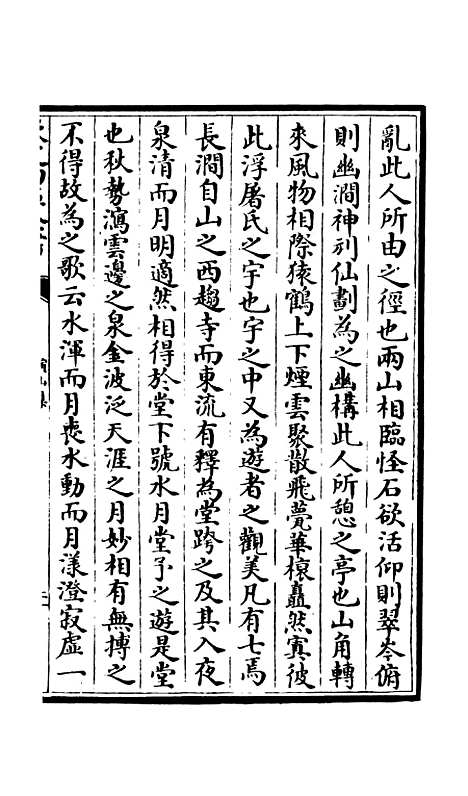 亂此人所由之徑也兩山相臨怪石欲活仰則翠岑俯
則幽澗神列仙劃為之幽構此人所憩之亭也山角轉
來風物相際猿鶴上下煙雲聚散飛甍華榱矗然寘彼
此浮屠氏之宇也宇之中又為遊者之觀美凡有七焉
長澗自山之西趨寺而東流有釋為堂跨之及其入夜
泉清而月明適然相得於堂下號水月堂予之遊是堂
也秋勢瀉雲邊之泉金波泛天涯之月妙相有無搏之
不得故為之歌云水渾而月喪水動而月漾澄寂虛一